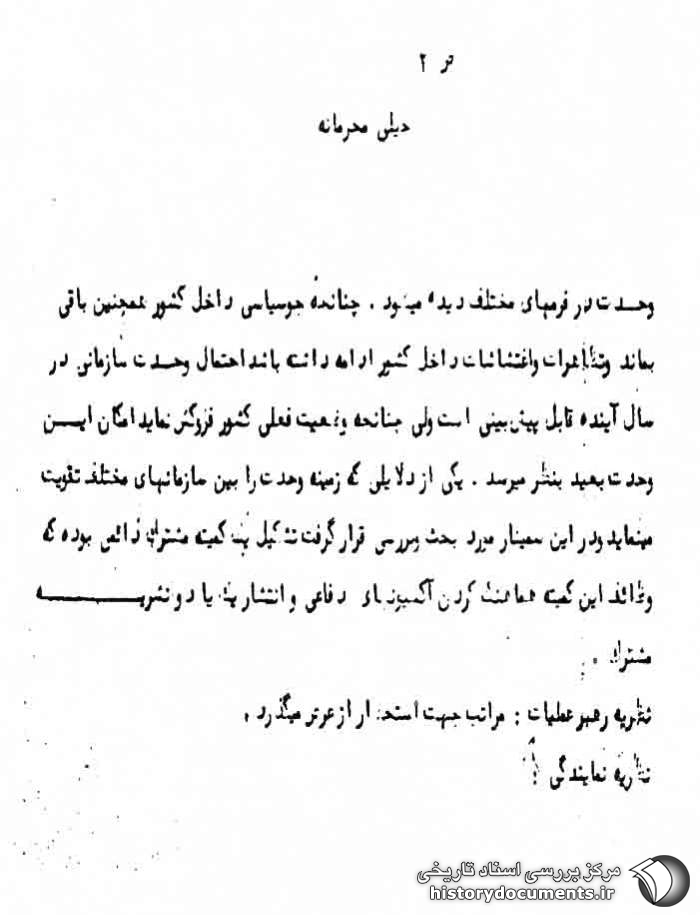 ۲
خیلی محرمانه
وحدت در فرمهای مختلف دیده میشود . چنانچه جو سیاسی داخل کشور همچنین باقی
بماند وتظاهرات واغتشاشات داخل کشور ادامه داشته باشد احتمال وحدت سازمانی در
سال آینده قابل پیش بینی است ولی چنانچه وضعیت فعلی کشور فروکش نماید امکان ایـــن
وحدت بعید بنظر میرسد . یکی از دلایلی که زمینه وحدت را بین سازمانهای مختلف تقویت
مینماید ودر این سمینار مورد بحث وبررسی قرار گرفت تشکیل یک کمیته مشترک دفاعی بوده که
وظائف این کمیته هماهنگ کردن آکسیونهای دفاعی و انتشار یک یا دو نشریـــــه
مشترک .
نظریه رهبر عملیات : مراتب جهت استحضار از عرض میگذرد .
نظریه نمایندگی :
مرکز بررسی اسناد تاریخی
historydocuments.ir